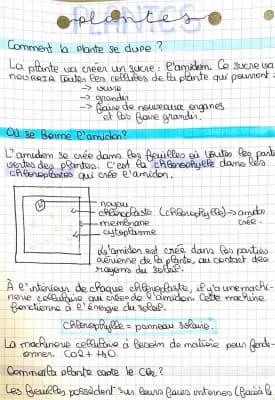 PLANTES
plantes
Comment la plante se dupe ?
La plante va créer un sucre : l'amidon. Ce sucre va
nourrir toutes les cellules de la plante qui peuvent :
→ vivre
→ grandir
→ faire de nouveaux organes
et les faire grandir.
Où se forme l'amidon ?
L'amidon se crée dans les feuilles où toutes les part
vertes des plantes. C'est la chlorophylle dans les
chloroplastes qui crée l'amidon.
noyau
chloroplaste (chlorophylle) → amidon
crée.
membrane
cytoplasme
L'amidon est crée dans les parties
aérienne de la plante, au contact des
rayons du soleil.
À l'intérieur de chaque chloroplaste, il y a une machi-
nerie cellulaire qui crée de l'amidon. Cette machine
fonctionne à l'énergie du soleil.
Chlorophylle = panneau solaire.
La machinerie cellulaire à besoin de matière pour fonct-
ionner. CO2 + H2O.
Comment la plante capte le CO2 ?
Les feuilles possèdent sur leurs faces internes (face à l